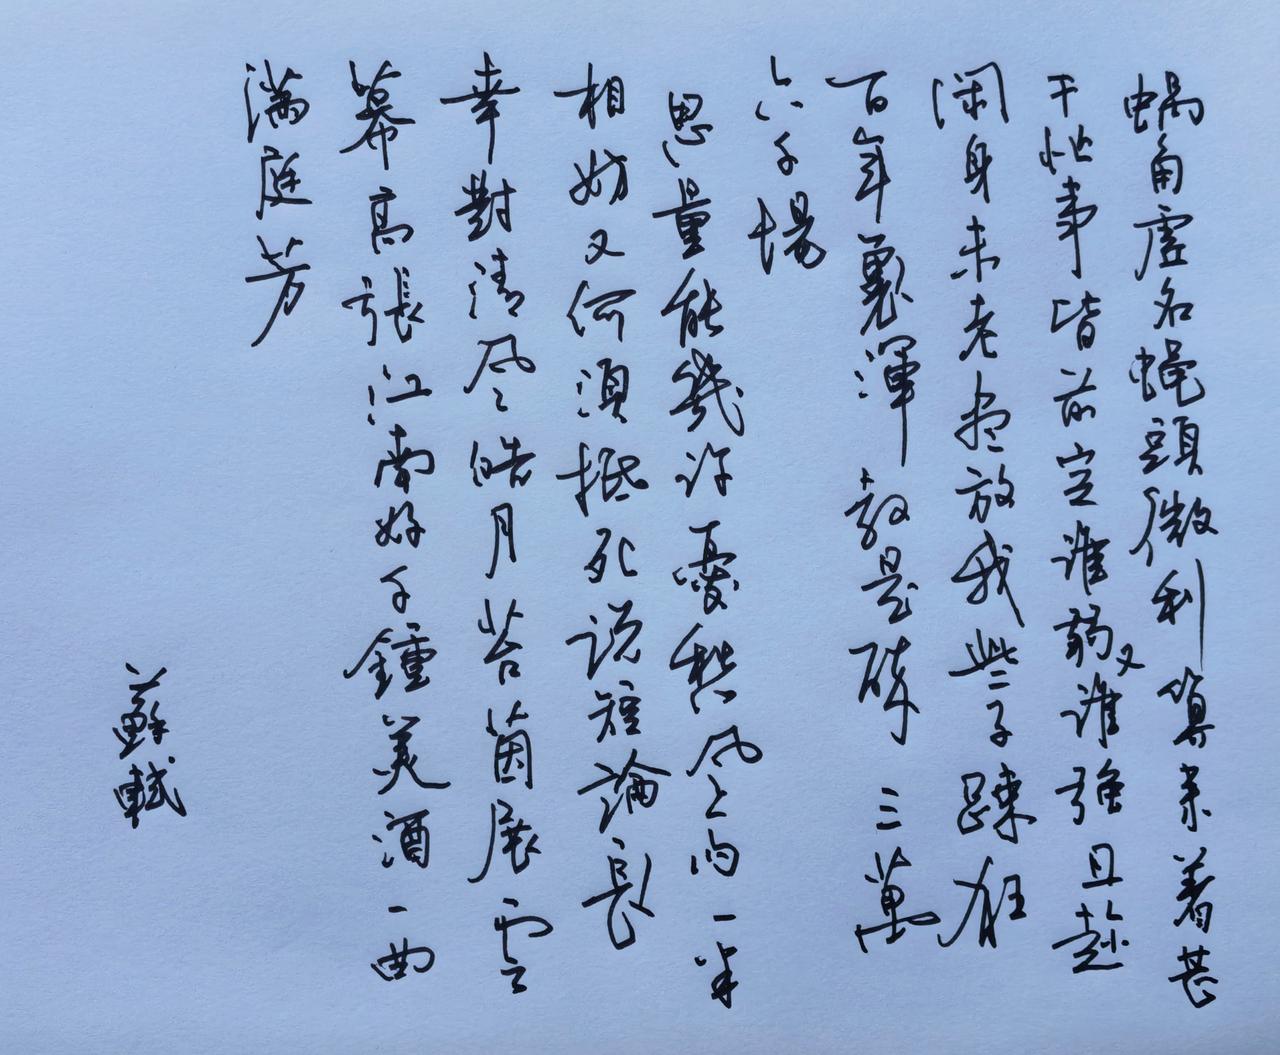 蝸角虛名蠅頭微利算來着甚
干忙事皆前定誰弱又誰強且趁
閑身未老盡放我些子疎狂
百年裏渾教是醉三萬
六千場
思量能幾許憂愁風雨一半
相妨又何須抵死說短論長
幸對清風皓月苔茵展雲
幕高張江南好千鍾美酒一曲
滿庭芳
蘇軾